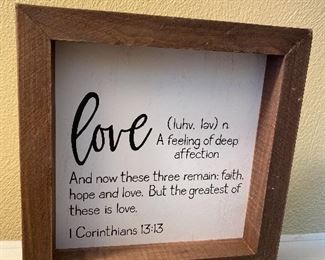 love (luhv, ləv) n.
A feeling of deep
affection
And now these three remain: faith,
hope and love. But the greatest of
these is love.
1 Corinthians 13:13